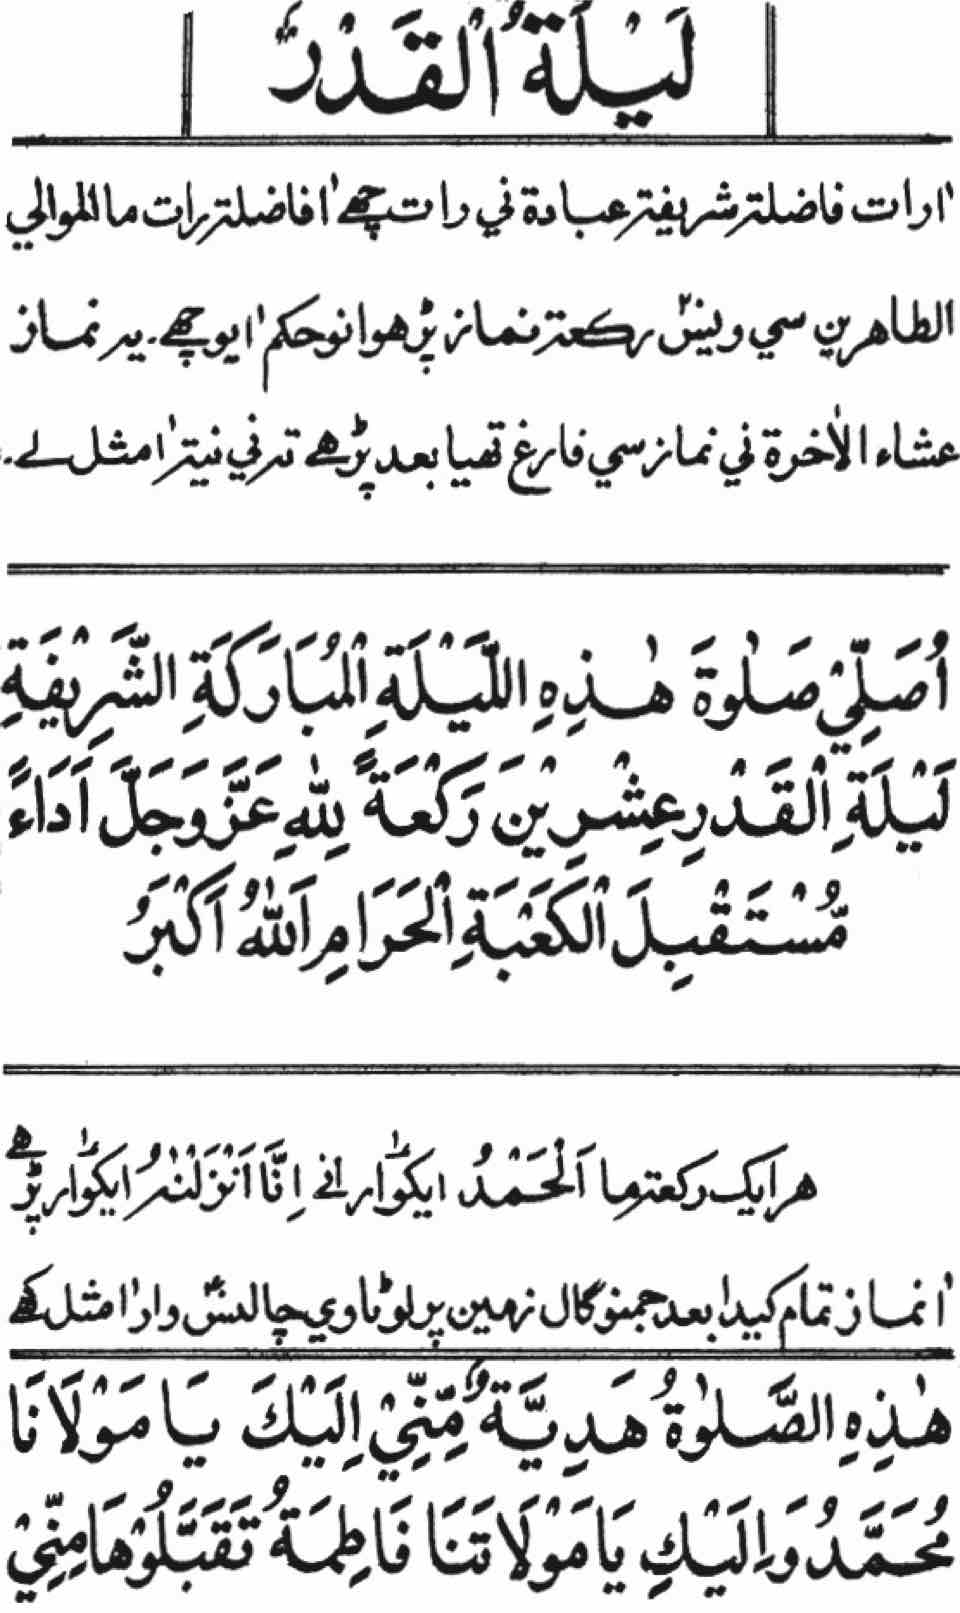 لَيْلَةُ الْقَدْرِ
اٰرات فاضلة شريفة عبادة ني رات چھے اٰ فاضلة رات ما الموالي
الطاهرين سي ويس ركعة نماز پڑھوانو حكم اٰيو چھے۔ يہ نماز
عشاء الاٰخرة ني نماز سي فارغ تھيا بعد پڑھے تہ ني نية اٰمثل لے۔
اُصَلِّيْ صَلٰوةَ هٰذِهِ اللَّيْلَةِ الْمُبَارَكَةِ الشَّرِيْفَةِ
لَيْلَةِ الْقَدْرِ عِشْرِيْنَ رَكْعَةً لِلّٰهِ عَزَّ وَجَلَّ اَدَاءً
مُّسْتَقْبِلَ الْكَعْبَةِ الْحَرَامِ اَللّٰهُ اَكْبَرُ
هر اَيک ركعة ما اَلْحَمْدُ ايكوار انے اِنَّا اَنْزَلْنٰهُ ايكوار پڑھے
اٰ نماز تمام كيدا بعد جمنو گال زمين پر لوٹاوي چاليس وار اٰمثل كہے
هٰذِهِ الصَّلٰوةُ هَدِيَّةٌ مِّنِّيْ اِلَيْكَ يَا مَوْلَانَا
مُحَمَّدُ وَاِلَيْكِ يَا مَوْلَاتَنَا فَاطِمَةُ تَقَبَّلُوْهَا مِنِّيْ